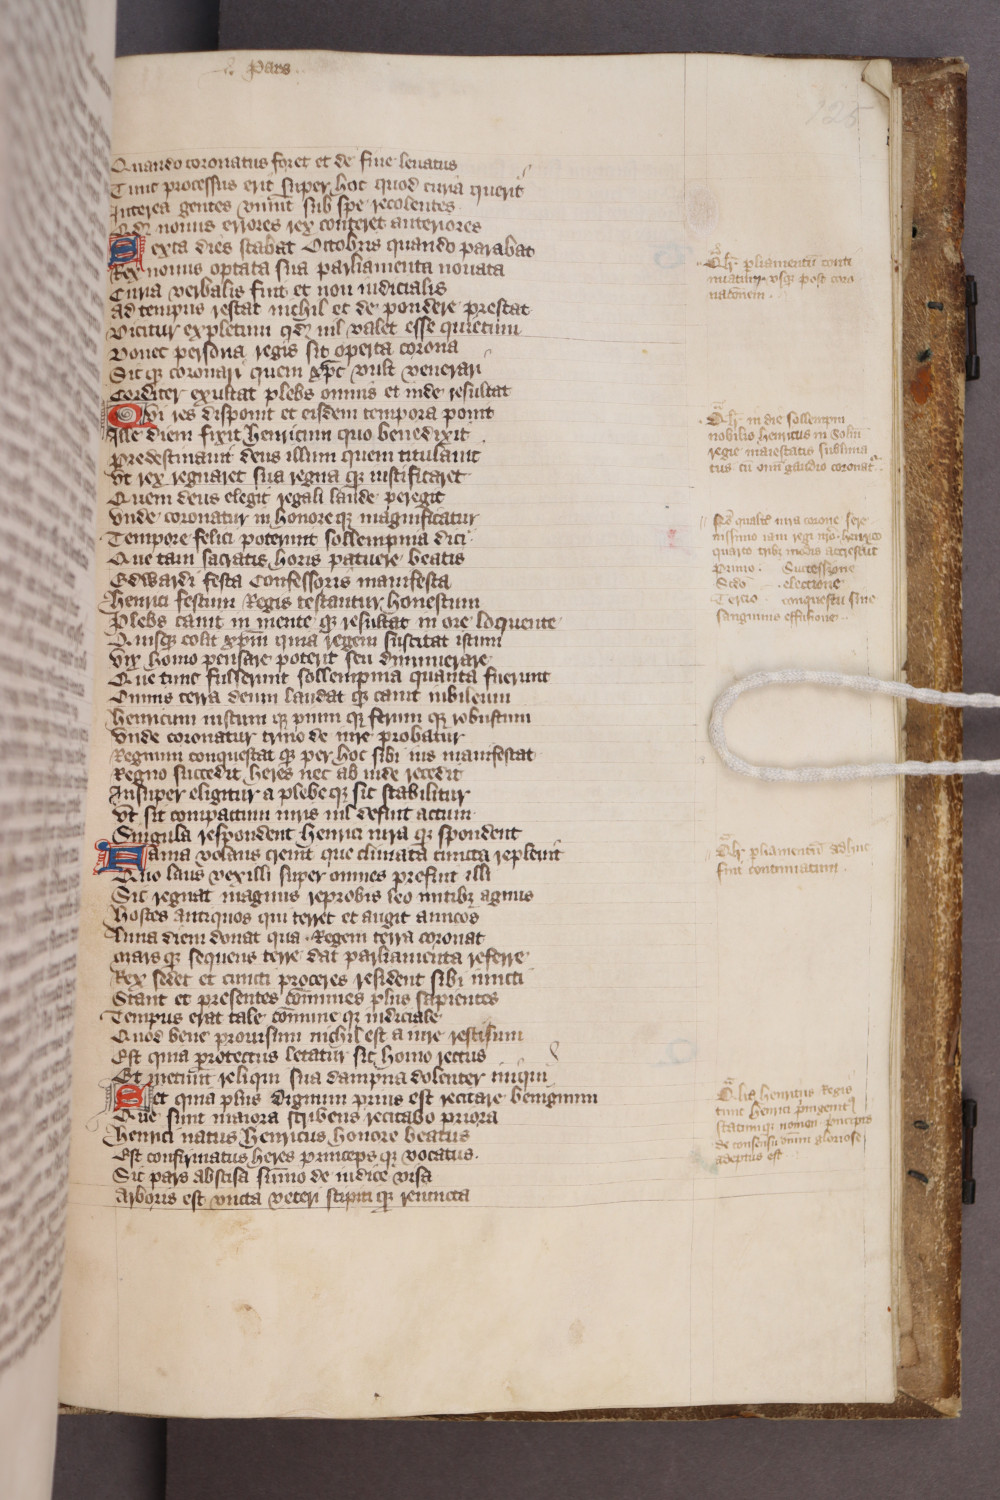 Pars
125
Quando coronatus foret et de fine leuatus
Tunc processus erit super hoc quod curia querit
Interea gentes viuunt sub spe recolentes
Qd nouus errores rex conteret anteriores
Sexta dies stabat Octobris quando parabat
Rex nouus optata sua parliamenta nouata
Curia verbalis fuit et non iudicialis
Ad tempus restat nichil et de pondere prestat
Dicitur expletum qd nil valet esse quietum
Donec persona regis sit operta corona
Sic qz coronari quem xpc vult venerari
Corditer exultat plebs omnis et inde resultat
Qui res disponit et eisdem tempora ponit
Ille diem fixit henricum quo benedixit
Predestinauit deus illum quem titulauit
Vt rex regnaret sua regna qz iustificaret
Quem deus elegit regali laude peregit
Vnde coronatur in honore qz magnificatur
Tempore felici poterunt sollempnia dici
Que tam sacratis horis patuere beatis
Edwardi festa Confessoris manifesta
Henrici festum Regis testantur honestum
Plebs canit in mente qz resultat in ore loquente
Quisqz colit xpm quia regem suscitat istum
Vix homo pensare poterit seu dinumerare
Que tunc fulserunt sollempnia quanta fuerunt
Omnis terra deum laudat qz canit iubileum
Henricum iustum qz pium qz ferum qz robustum
Vnde coronatur trino de iure probatur
Regnum conquestat qz per hoc sibi ius manifestat
Regno succedit heres nec ab inde recedit
Insuper eligitur a plebe qz sic stabilitur
Vt sit compactum iuris nil defuit actum
Singula respondent henrici iura qz spondent
Fama volans creuit que climata cuncta repleuit
Quo laus vexilli super omnes prefuit illi
Sic regnat magnus reprobis leo mitibz agnus
Hostes antiquos qui terret et augit amicos
Luna diem donat qua Regem terra coronat
Mars qz sequens terre dat parliamenta referre
Rex sedet et cuncti proceres resident sibi iuncti
Stant et presentes comunes plus sapientes
Tempus erat tale comune qz iudiciale
Quod bene prouisum nichil est a iure rescisum
Est quia protectus letatur sic homo rectus
Et metuunt reliqui sua dampna dolenter iniqui
Set quia plus dignum prius est recitare benignum
Que sunt maiora scribens recitabo priora
Henrici natus Henricus honore beatus
Est confirmatus heres princeps qz vocatus
Sic pars abscisa summo de iudice visa
Arboris est vncta veteri stipiti qz reiuncta
parliamentu conti
nuatur vsqz post coro
nacionem
in die sollempni
nobilis henricus in
regie maiestatis sublima
tus cu omi gaudio coronat
qualit iura corone sere
nissimo iam regi nro henrico
quarto tribz modis accrescut
Primo Successione
Scdo electione
Tercio conquestu sine
sanguinis effusione
parliamentu adhuc
fuit continuatum
henricus Regis
tunc henrici primogenit
statum qz nomen principis
de consensu omium gloriose
adeptus est